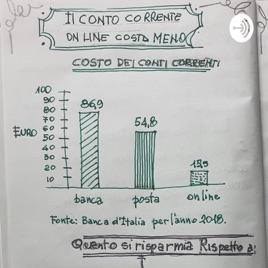 IL CONTO CORRENTE
ON LINE COSTA MENO
COSTO DEI CONTI CORRENTI
100
90
80
70
60
50
40
30
20
10
EURO
86,9
54,8
banca
posta
online
Fonte: Banca d'Italia per l'anno 2018.
Quanto si risparmia Rispetto a: